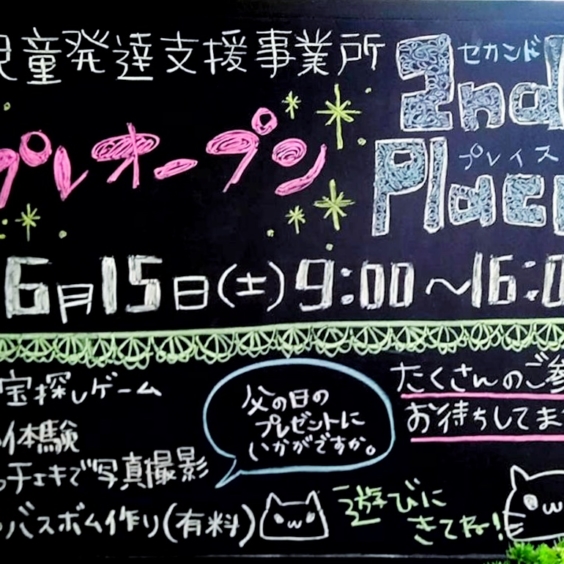 児童発達支援事業所
セカンド
2nd
プレイス
Place
プレオープン
6月15日(土)9:00〜16:0
宝探しゲーム
体験
チェキで写真撮影
バスボム作り(有料)
父の日の
プレゼントに
いかがですか。
たくさんのご参
お待ちしてます
遊びに
きてね!